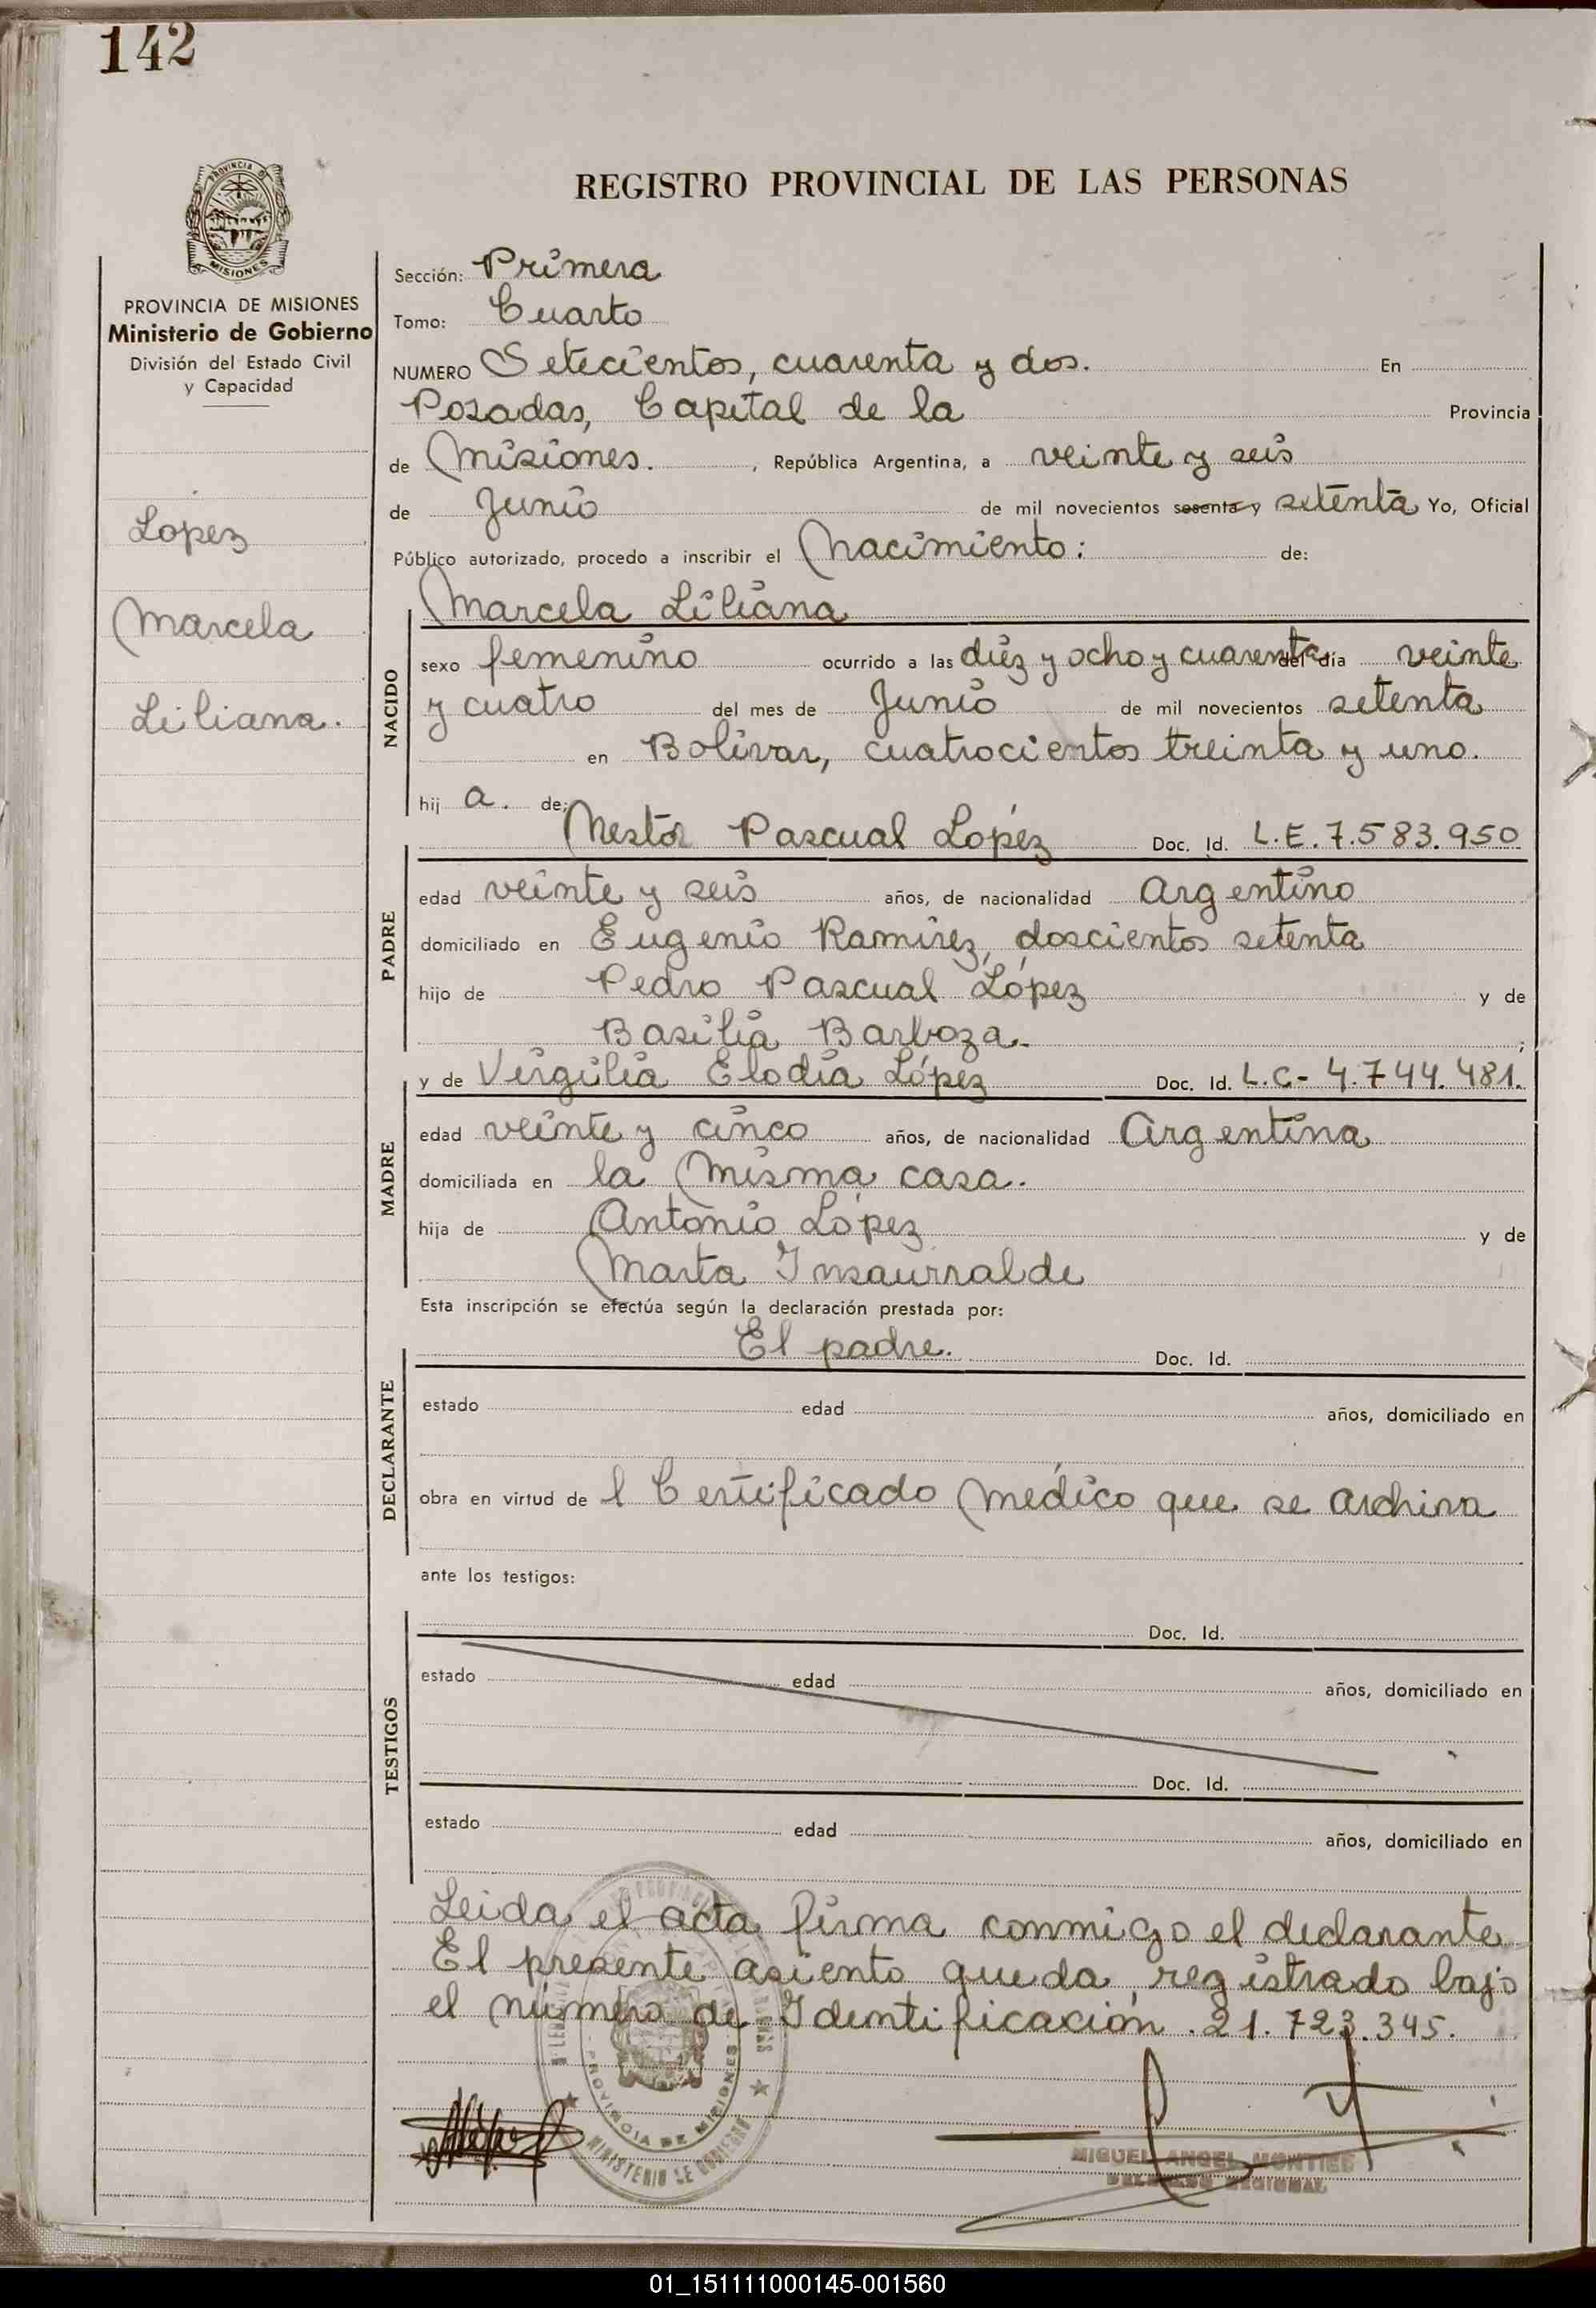 142
PROVINCIA DE
MISIONES
PROVINCIA DE MISIONES
Ministerio de Gobierno
División del Estado Civil
y Capacidad
Lopez
Marcela
Liliana.
REGISTRO PROVINCIAL DE LAS PERSONAS
Sección: Primera
Tomo: Cuarto
NUMERO Setecientos, cuarenta y dos. En
Posadas, Capital de la Provincia
de Misiones. , República Argentina, a veinte y seis
de Junio de mil novecientos sesenta y setenta Yo, Oficial
Público autorizado, procedo a inscribir el Nacimiento: de:
Marcela Liliana
NACIDO
sexo femenino ocurrido a las diez y ocho y cuarenta del día veinte
y cuatro del mes de Junio de mil novecientos setenta
en Bolivar, cuatrocientos treinta y uno.
hij a. de;
Nestor Pascual Lopéz Doc. Id. L.E. 7.583.950
PADRE
edad veinte y seis años, de nacionalidad Argentino
domiciliado en Eugenio Ramirez, doscientos setenta
hijo de Pedro Pascual López y de
Basilia Barboza. ;
y de Virgilia Elodia López Doc. Id. L.C- 4.744.481.
MADRE
edad veinte y cinco años, de nacionalidad Argentina
domiciliada en la Misma casa.
hija de Antonio López y de
Marta Insaurralde
Esta inscripción se efectúa según la declaración prestada por:
El padre. Doc. Id.
DECLARANTE
estado edad años, domiciliado en
obra en virtud de l Certificado médico que se archiva
ante los testigos:
Doc. Id.
TESTIGOS
estado edad años, domiciliado en
Doc. Id.
estado edad años, domiciliado en
Leida el acta firma conmigo el declarante
El presente asiento queda registrado bajo
el número de Identificación 21.723.345.
PROVINCIA DE MISIONES
MINISTERIO DE GOBIERNO
MIGUEL ANGEL MONTIEL
DELEGADO REGIONAL
01_151111000145-001560